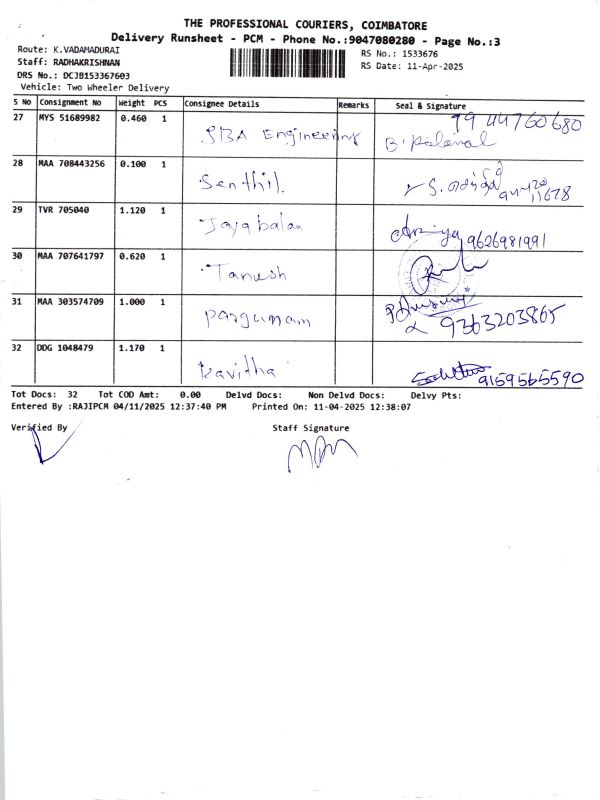 THE PROFESSIONAL COURIERS, COIMBATORE
Delivery Runsheet - PCM - Phone No.:9047080280 - Page No.:3
Route: K.VADAMADURAI
RS No.: 1533676
Staff: RADHAKRISHNAN
RS Date: 11-Apr-2025
DRS No.: DCJB153367603
Vehicle: Two Wheeler Delivery
S No Consignment No Weight PCS Consignee Details Remarks Seal & Signature
27 MYS 51689982 0.460 1 SBA Engineering 9944760680
28 MAA 708443256 0.100 1 Senthil.
29 TVR 705040 1.120 1 Jayabalan 9626981991
30 MAA 707641797 0.620 1 Tanush
31 MAA 303574709 1.000 1 9363203865
32 DDG 1048479 1.170 1 Kavitha 9159565590
Tot Docs: 32 Tot COD Amt: 0.00 Delvd Docs: Non Delvd Docs: Delvy Pts:
Entered By :RAJIPCM 04/11/2025 12:37:40 PM Printed On: 11-04-2025 12:38:07
Verified By Staff Signature